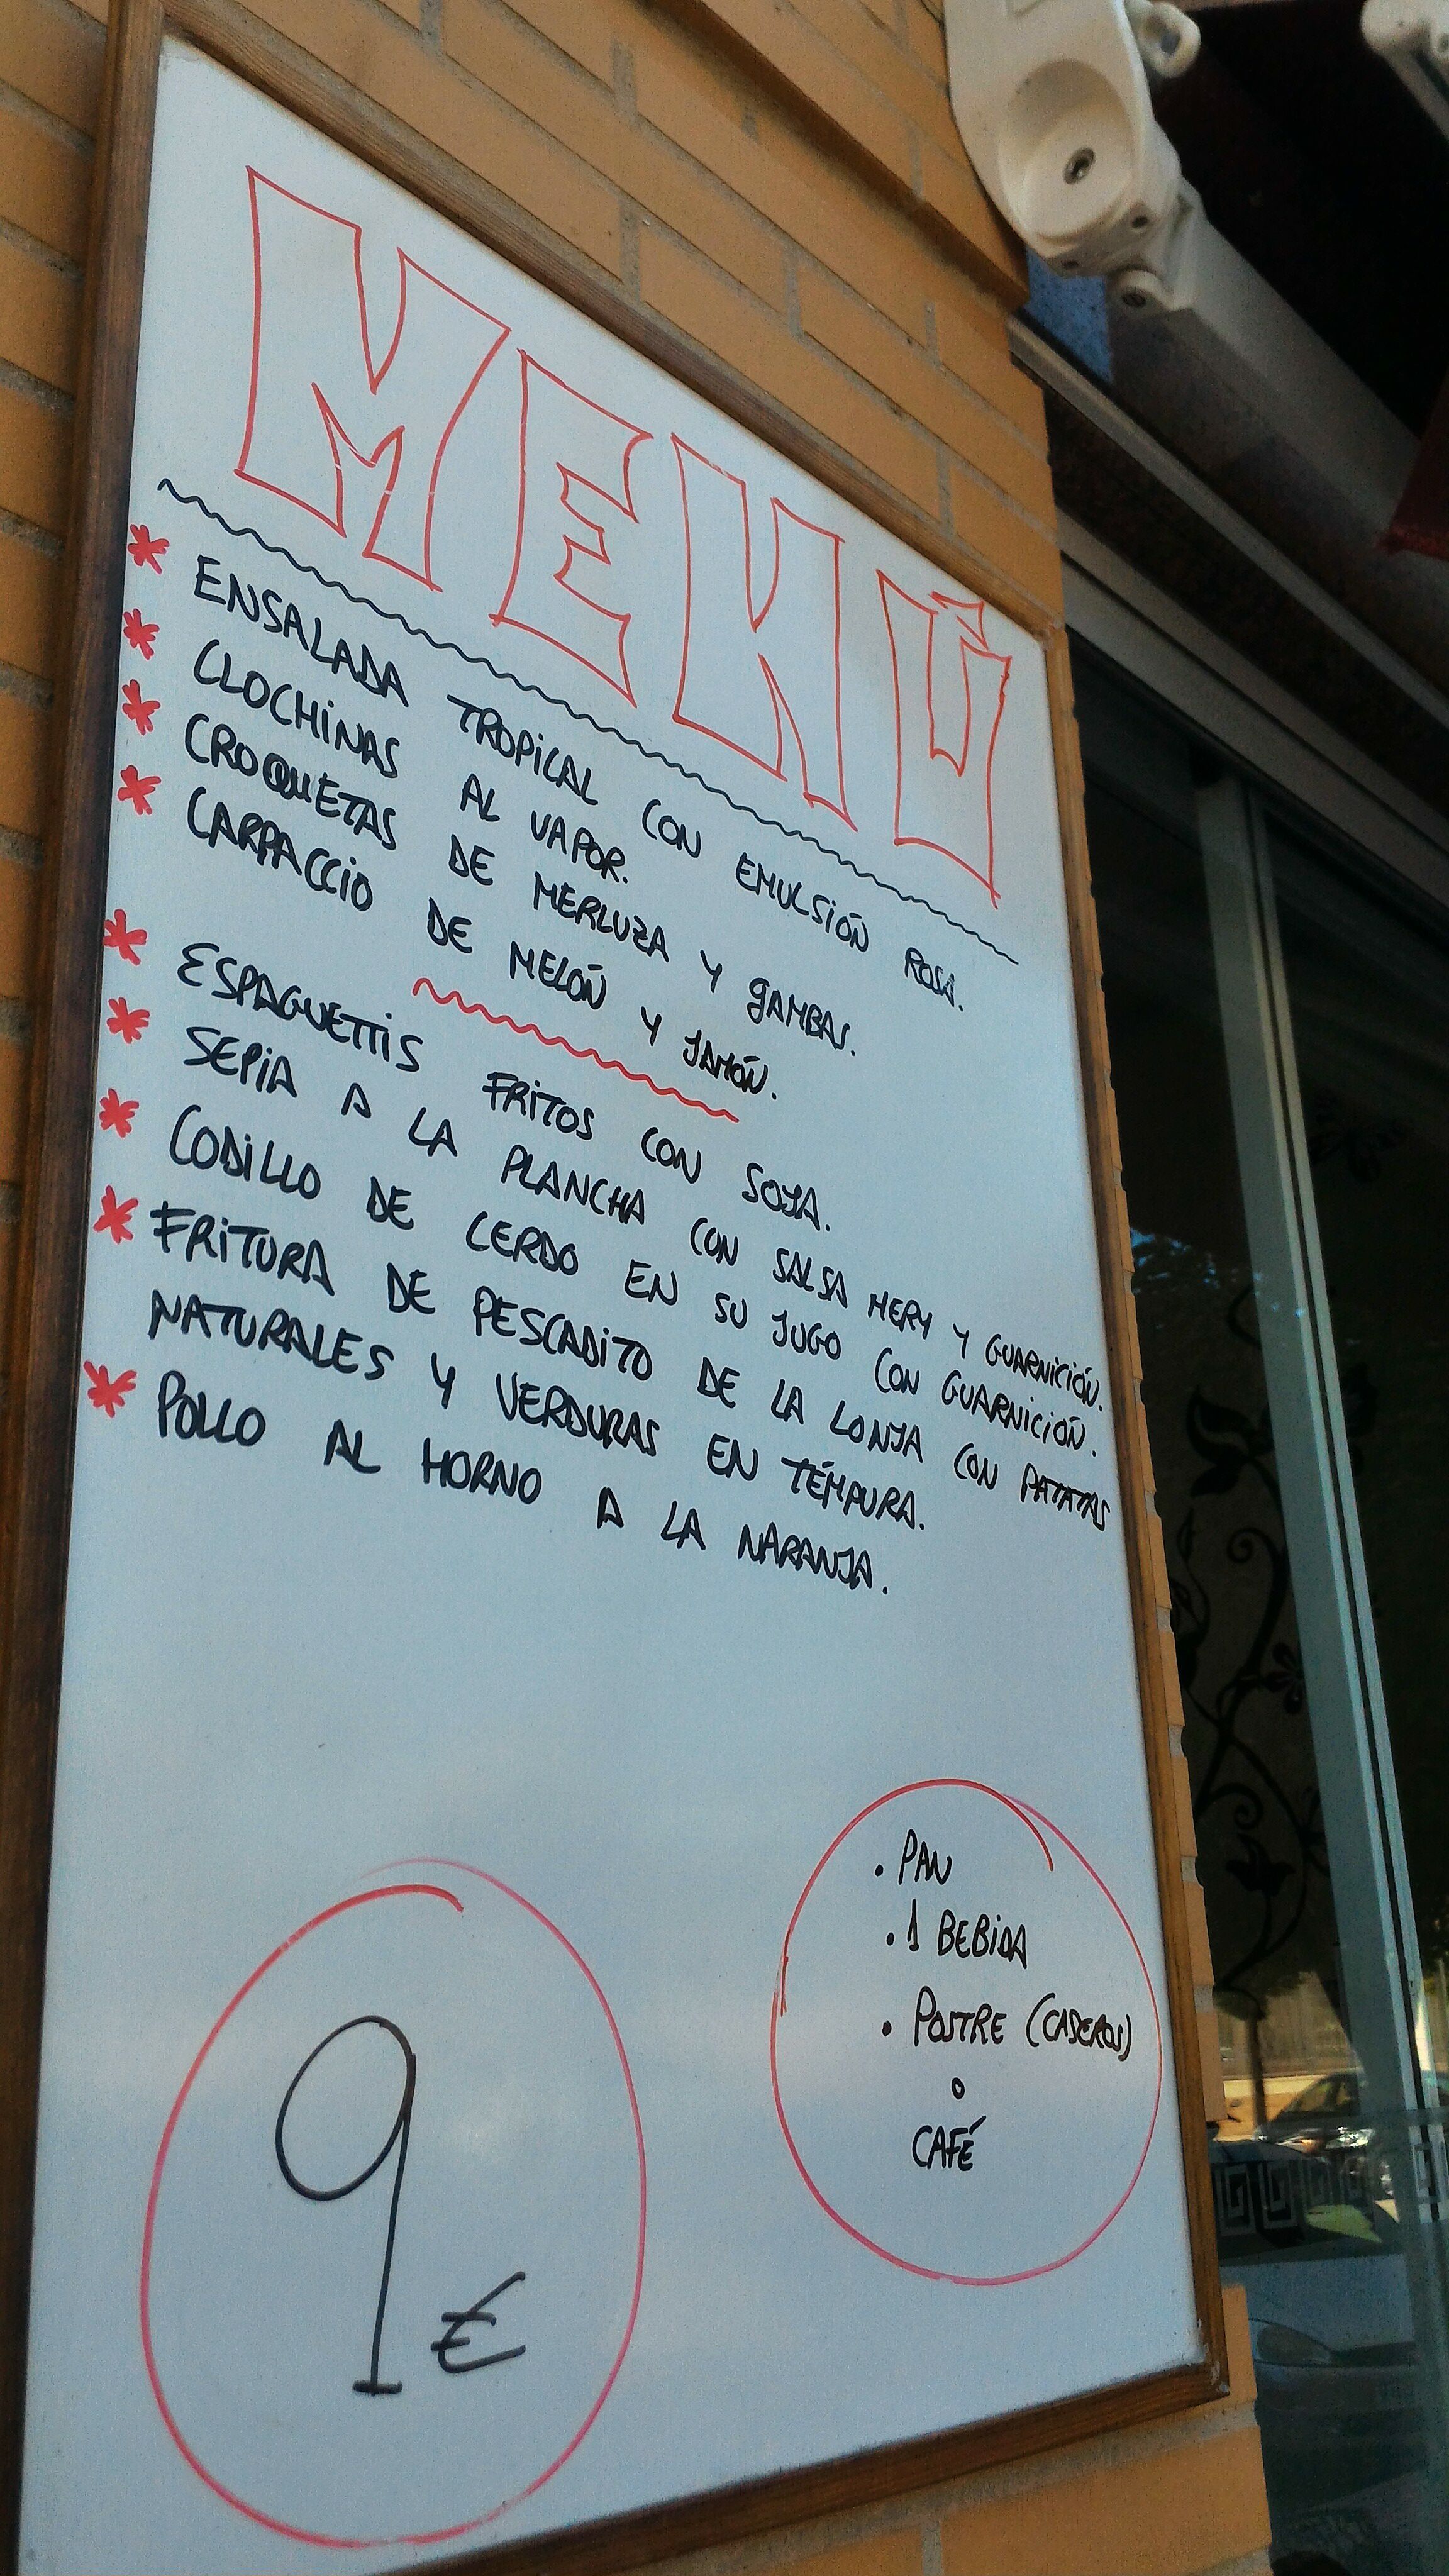 MENÚ
* ENSALADA TROPICAL CON EMULSIÓN ROSA.
* CLOCHINAS AL VAPOR.
* CROQUETAS DE MERLUZA Y GAMBAS.
* CARPACCIO DE MELÓN Y JAMÓN.
* ESPAGUETTIS FRITOS CON SOJA.
* SEPIA A LA PLANCHA CON SALSA MERY Y GUARNICIÓN.
* CODILLO DE CERDO EN SU JUGO CON GUARNICIÓN.
* FRITURA DE PESCADITO DE LA LONJA CON PATATAS
NATURALES Y VERDURAS EN TÉMPURA.
* POLLO AL HORNO A LA NARANJA.
9 €
• PAN
• 1 BEBIDA
• POSTRE (CASEROS)
o
CAFÉ